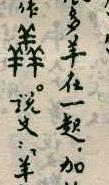 多羊在一起,加
作羴。說文:「羊